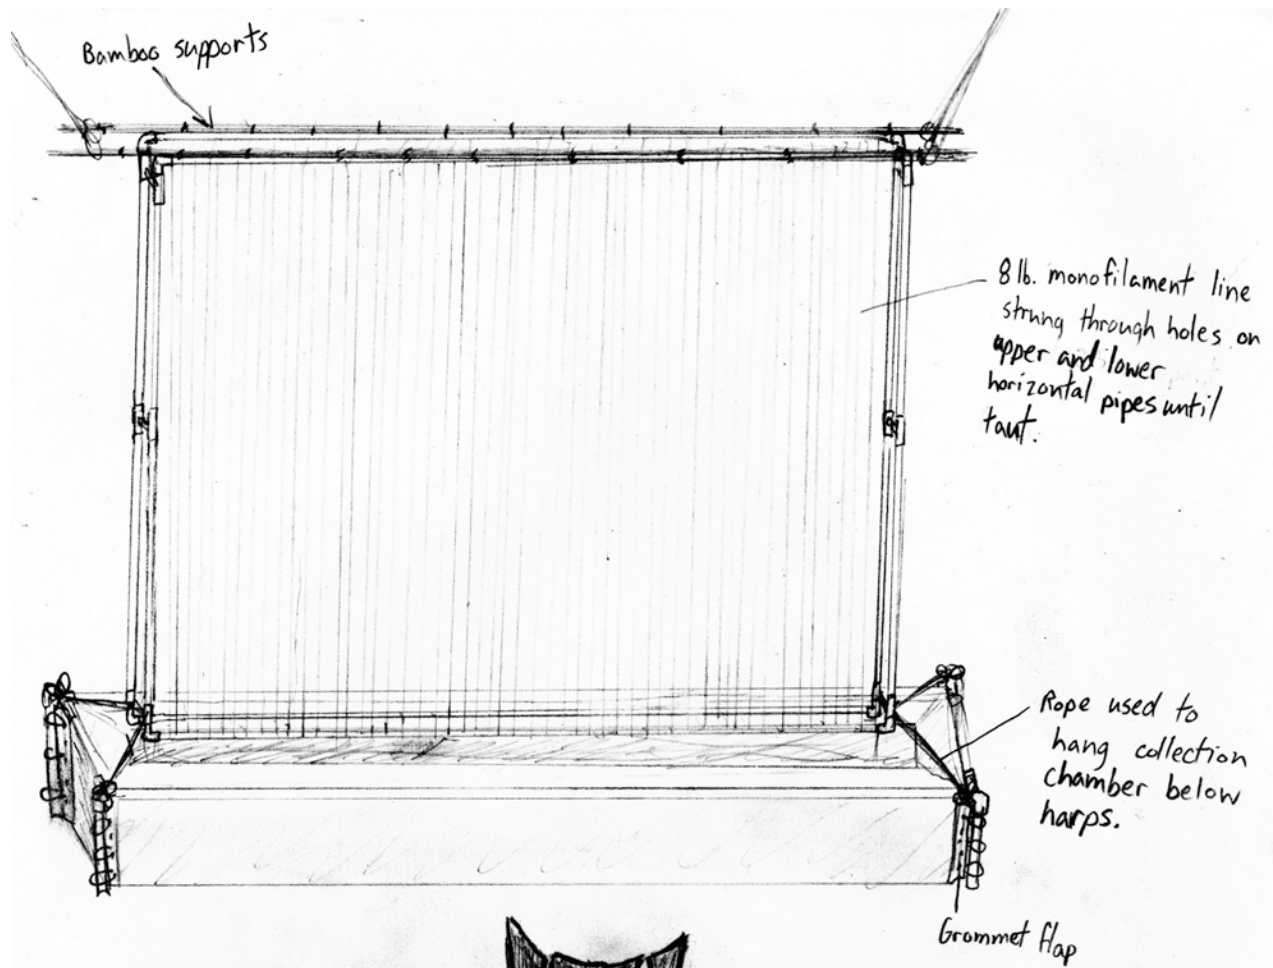 Bamboo supports
8 lb. monofilament line
strung through holes on
upper and lower
horizontal pipes until
taut.
Rope used to
hang collection
chamber below
harps.
Grommet flap